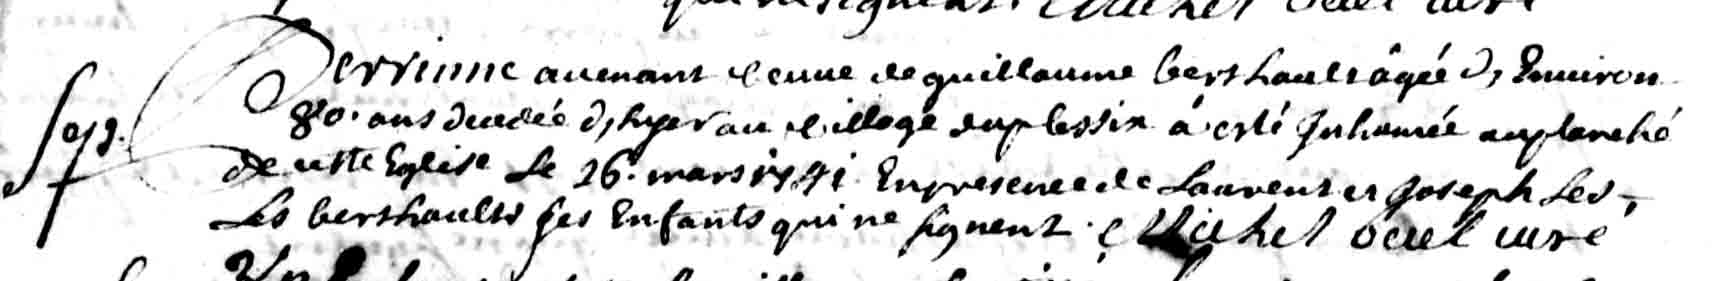 qui ne signent. Michel oeul curé
Perrinne auenant veuue de guillaume berthault âgée d, Enuiron
80. ans decedée d, hyer au village duplessix á esté Inhumée auplanché
de cette Eglise Le 26. mars 1741 En presence de Laurent et Joseph Les,
Les berthaults ses Enfants qui ne signent. Michel oeul curé